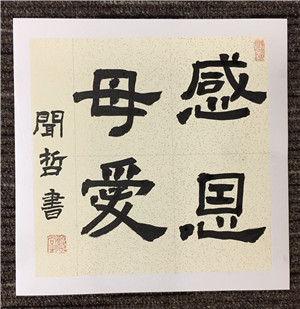 感恩
母愛
聞哲書